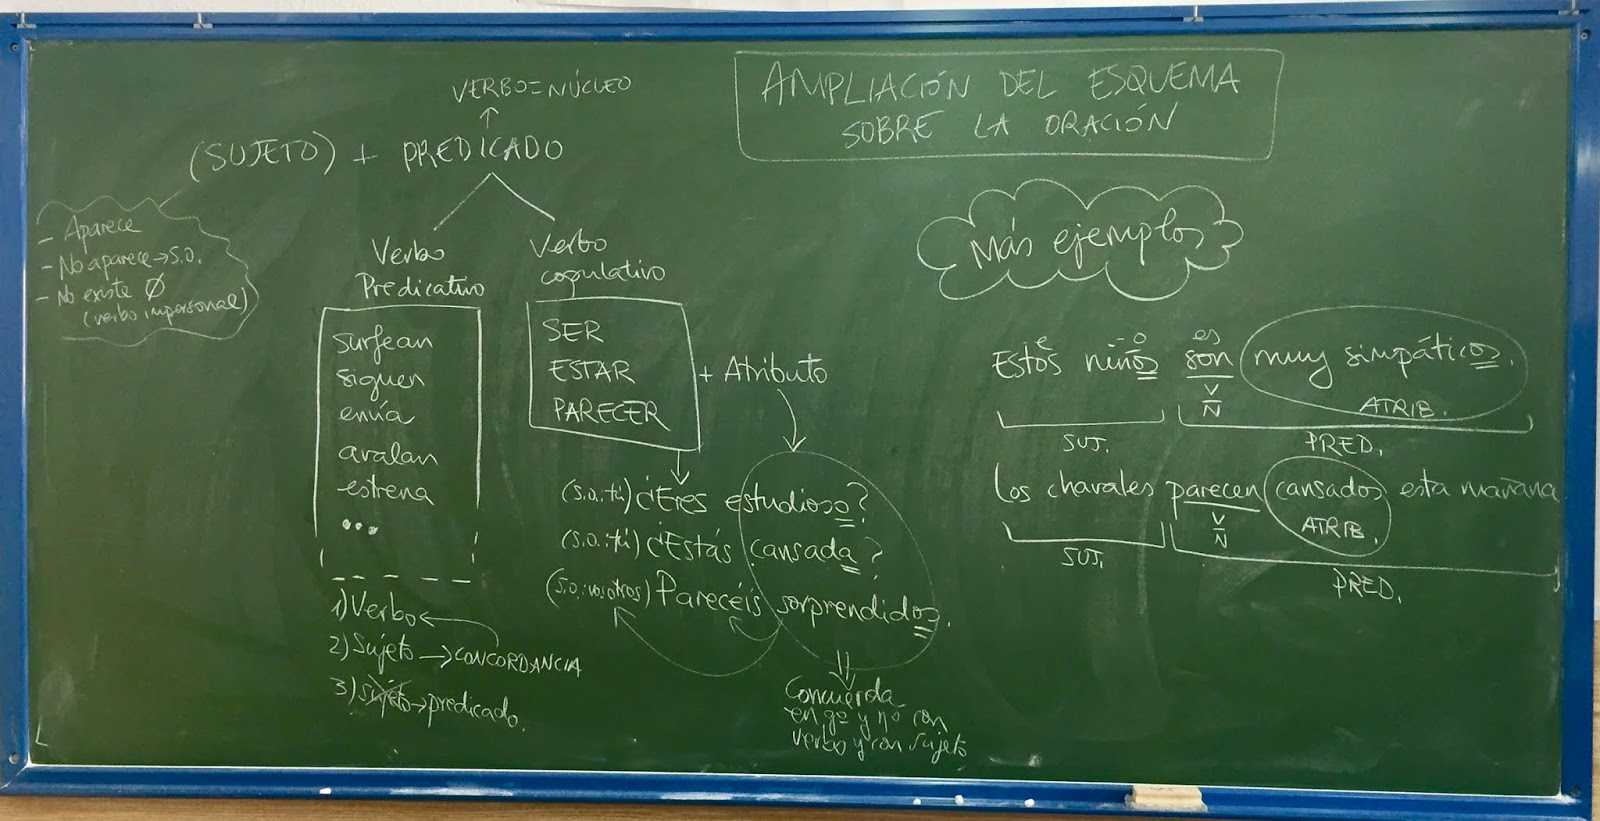 AMPLIACIÓN DEL ESQUEMA
SOBRE LA ORACIÓN
VERBO=NÚCLEO
↑
(SUJETO) + PREDICADO
- Aparece
- No aparece → S.O.
- No existe Ø
(verbo impersonal)
Verbo
Predicativo
surfean
siguen
envía
avalan
estrena
...
1) Verbo
2) Sujeto → CONCORDANCIA
3) Sujeto → predicado.
Verbo
copulativo
SER
ESTAR
PARECER
+ Atributo
(S.O.: tú) ¿Eres estudioso?
(S.O.: tú) ¿Estás cansada?
(S.O.: vosotros) Parecéis sorprendidos.
Concuerda
en gº y nº con
verbo y con sujeto
Más ejemplos
e -o es
Estos niños son muy simpáticos.
V
N
ATRIB.
SUJ. PRED.
Los chavales parecen cansados esta mañana
V
N
ATRIB.
SUJ.
PRED.